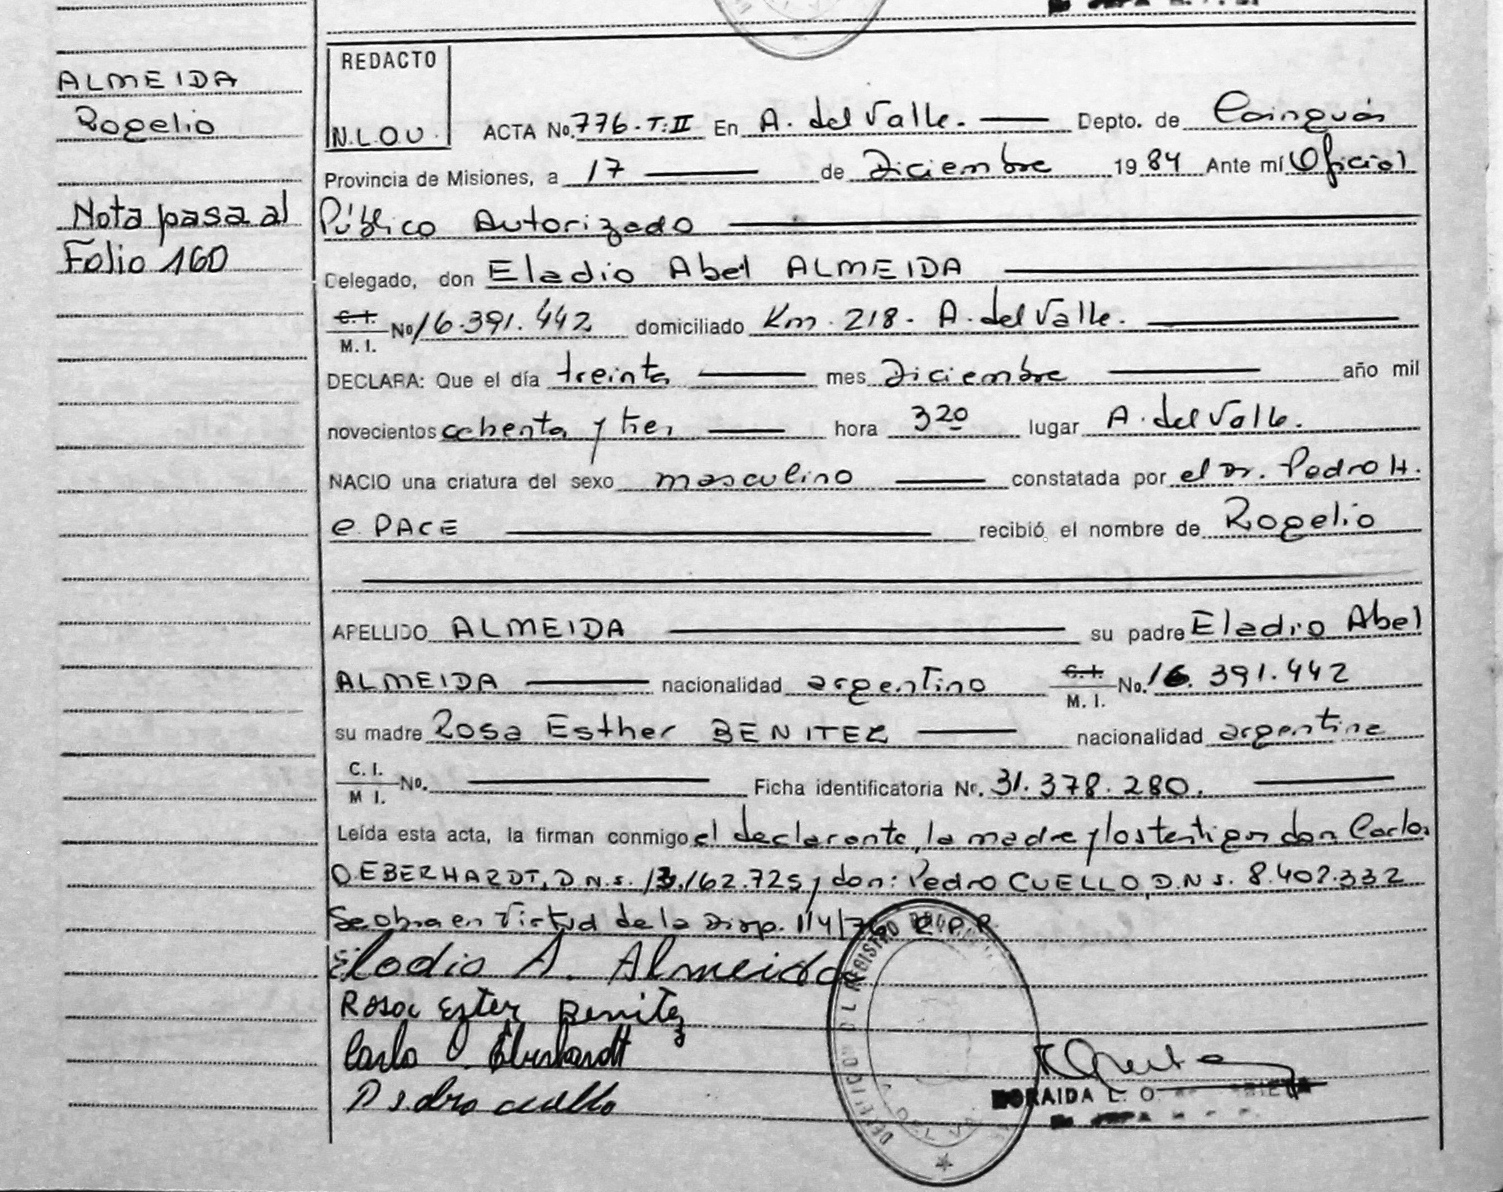 ALMEIDA
Rogelio
Nota pasa al
Folio 160
REDACTO
N.L.O.U.
ACTA No. 776.T:II En A. del Valle. Depto. de Cainguás
Provincia de Misiones, a 17 de Diciembre 1984 Ante mí Oficial
Público Autorizado
Delegado, don Eladio Abel ALMEIDA
C.I. M.I. No 16.391.442 domiciliado Km. 218. A. del Valle.
DECLARA: Que el día treinta mes Diciembre año mil
novecientos ochenta y tres hora 3 20 lugar A. del Valle.
NACIO una criatura del sexo masculino constatada por el Dr. Pedro H.
e. PACE recibió el nombre de Rogelio
APELLIDO ALMEIDA su padre Eladio Abel
ALMEIDA nacionalidad argentino C.I. M.I. No. 16.391.442
su madre Rosa Esther BENITEZ nacionalidad argentina
C.I. M I. No. Ficha identificatoria No. 31.378.280.
Leída esta acta, la firman conmigo el declarante, la madre y los testigos don Carlos
O.EBERHARDT, D.N.S. 13.162.725 y don: Pedro CUELLO, D.N.S. 8.402.332
Se obra en virtud de la Disp. 114/76 R.P.P.
Eladio A. Almeida
Rosa Ester Benitez
Carlo O. Eberhardt
Pedro cuello
DEL REGISTRO
NORAIDA L. O